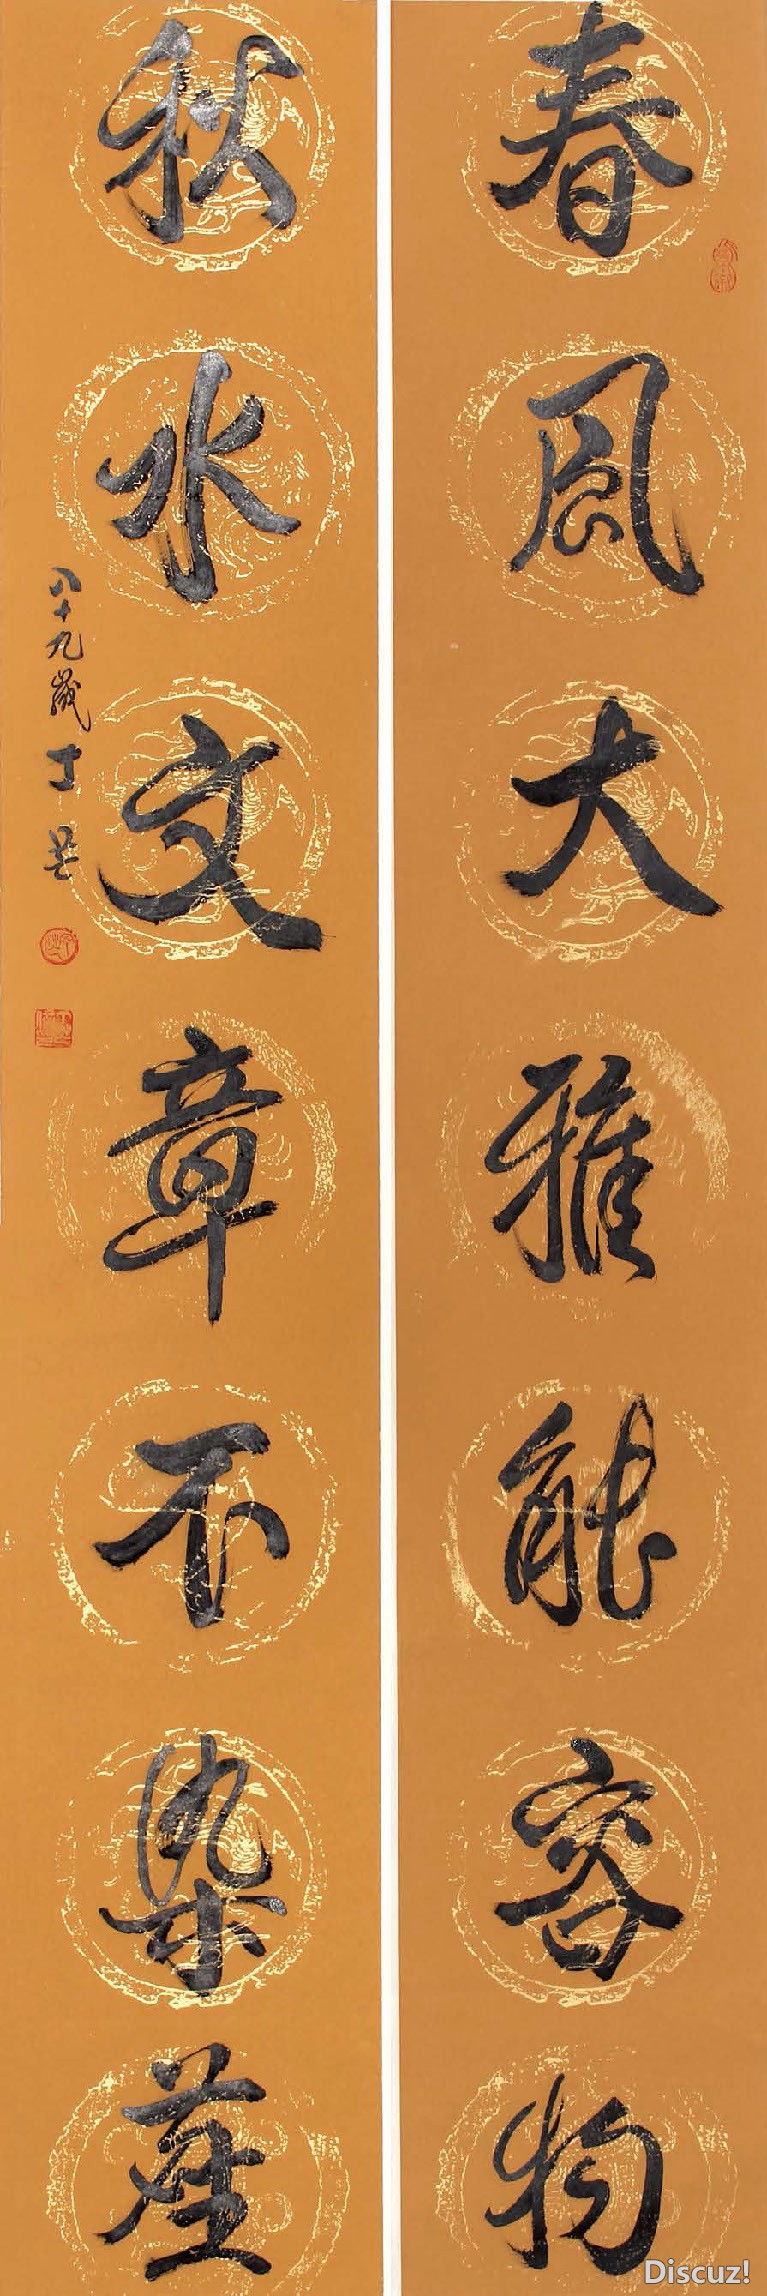 春风大雅能容物
秋水文章不染尘
八十九岁
Discuz!